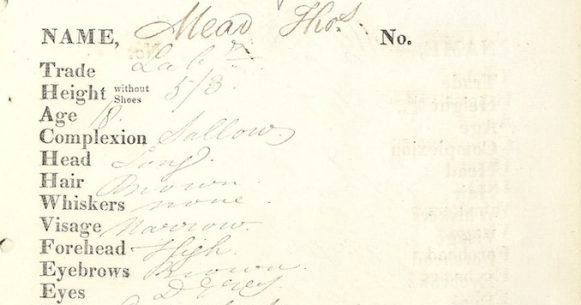 NAME, Mead Thos. No.
Trade Labr.
Height without Shoes 5/3
Age 18.
Complexion Sallow
Head Long.
Hair Brown.
Whiskers none.
Visage Narrow.
Forehead High.
Eyebrows Brown.
Eyes D Grey